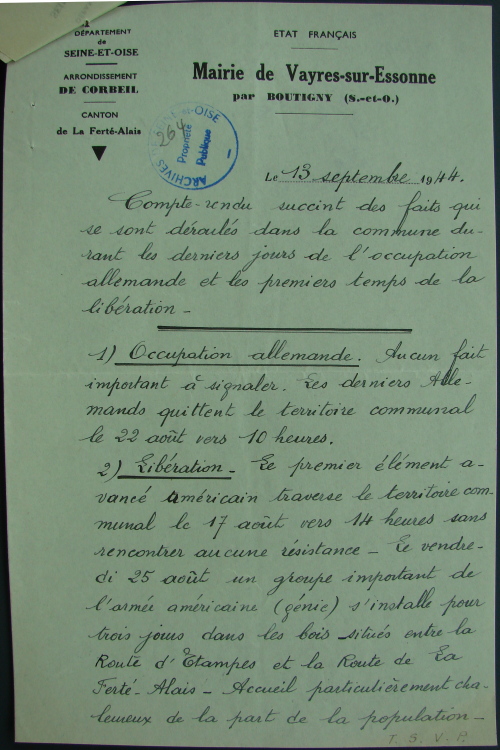 DÉPARTEMENT
de
SEINE-ET-OISE
ARRONDISSEMENT
DE CORBEIL
CANTON
de La Ferté-Alais
ETAT FRANÇAIS
Mairie de Vayres-sur-Essonne
par BOUTIGNY (S.-et-O.)
ARCHIVES SEINE-et-OISE
264
Propriété
Publique
Le 13 septembre 1944.
Compte-rendu succint des faits qui
se sont déroulés dans la commune du-
rant les derniers jours de l'occupation
allemande et les premiers temps de la
libération -
1) Occupation allemande. Aucun fait
important à signaler. Les derniers Alle-
mands quittent le territoire communal
le 22 août vers 10 heures.
2) Libération - Le premier élément a-
vancé américain traverse le territoire com-
munal le 17 août vers 14 heures sans
rencontrer aucune résistance - Le vendre-
di 25 août un groupe important de
l'armée américaine (génie) s'installe pour
trois jours dans les bois situés entre la
Route d'Etampes et la Route de La
Ferté-Alais - Accueil particulièrement cha-
leureux de la part de la population -
T. S. V. P.